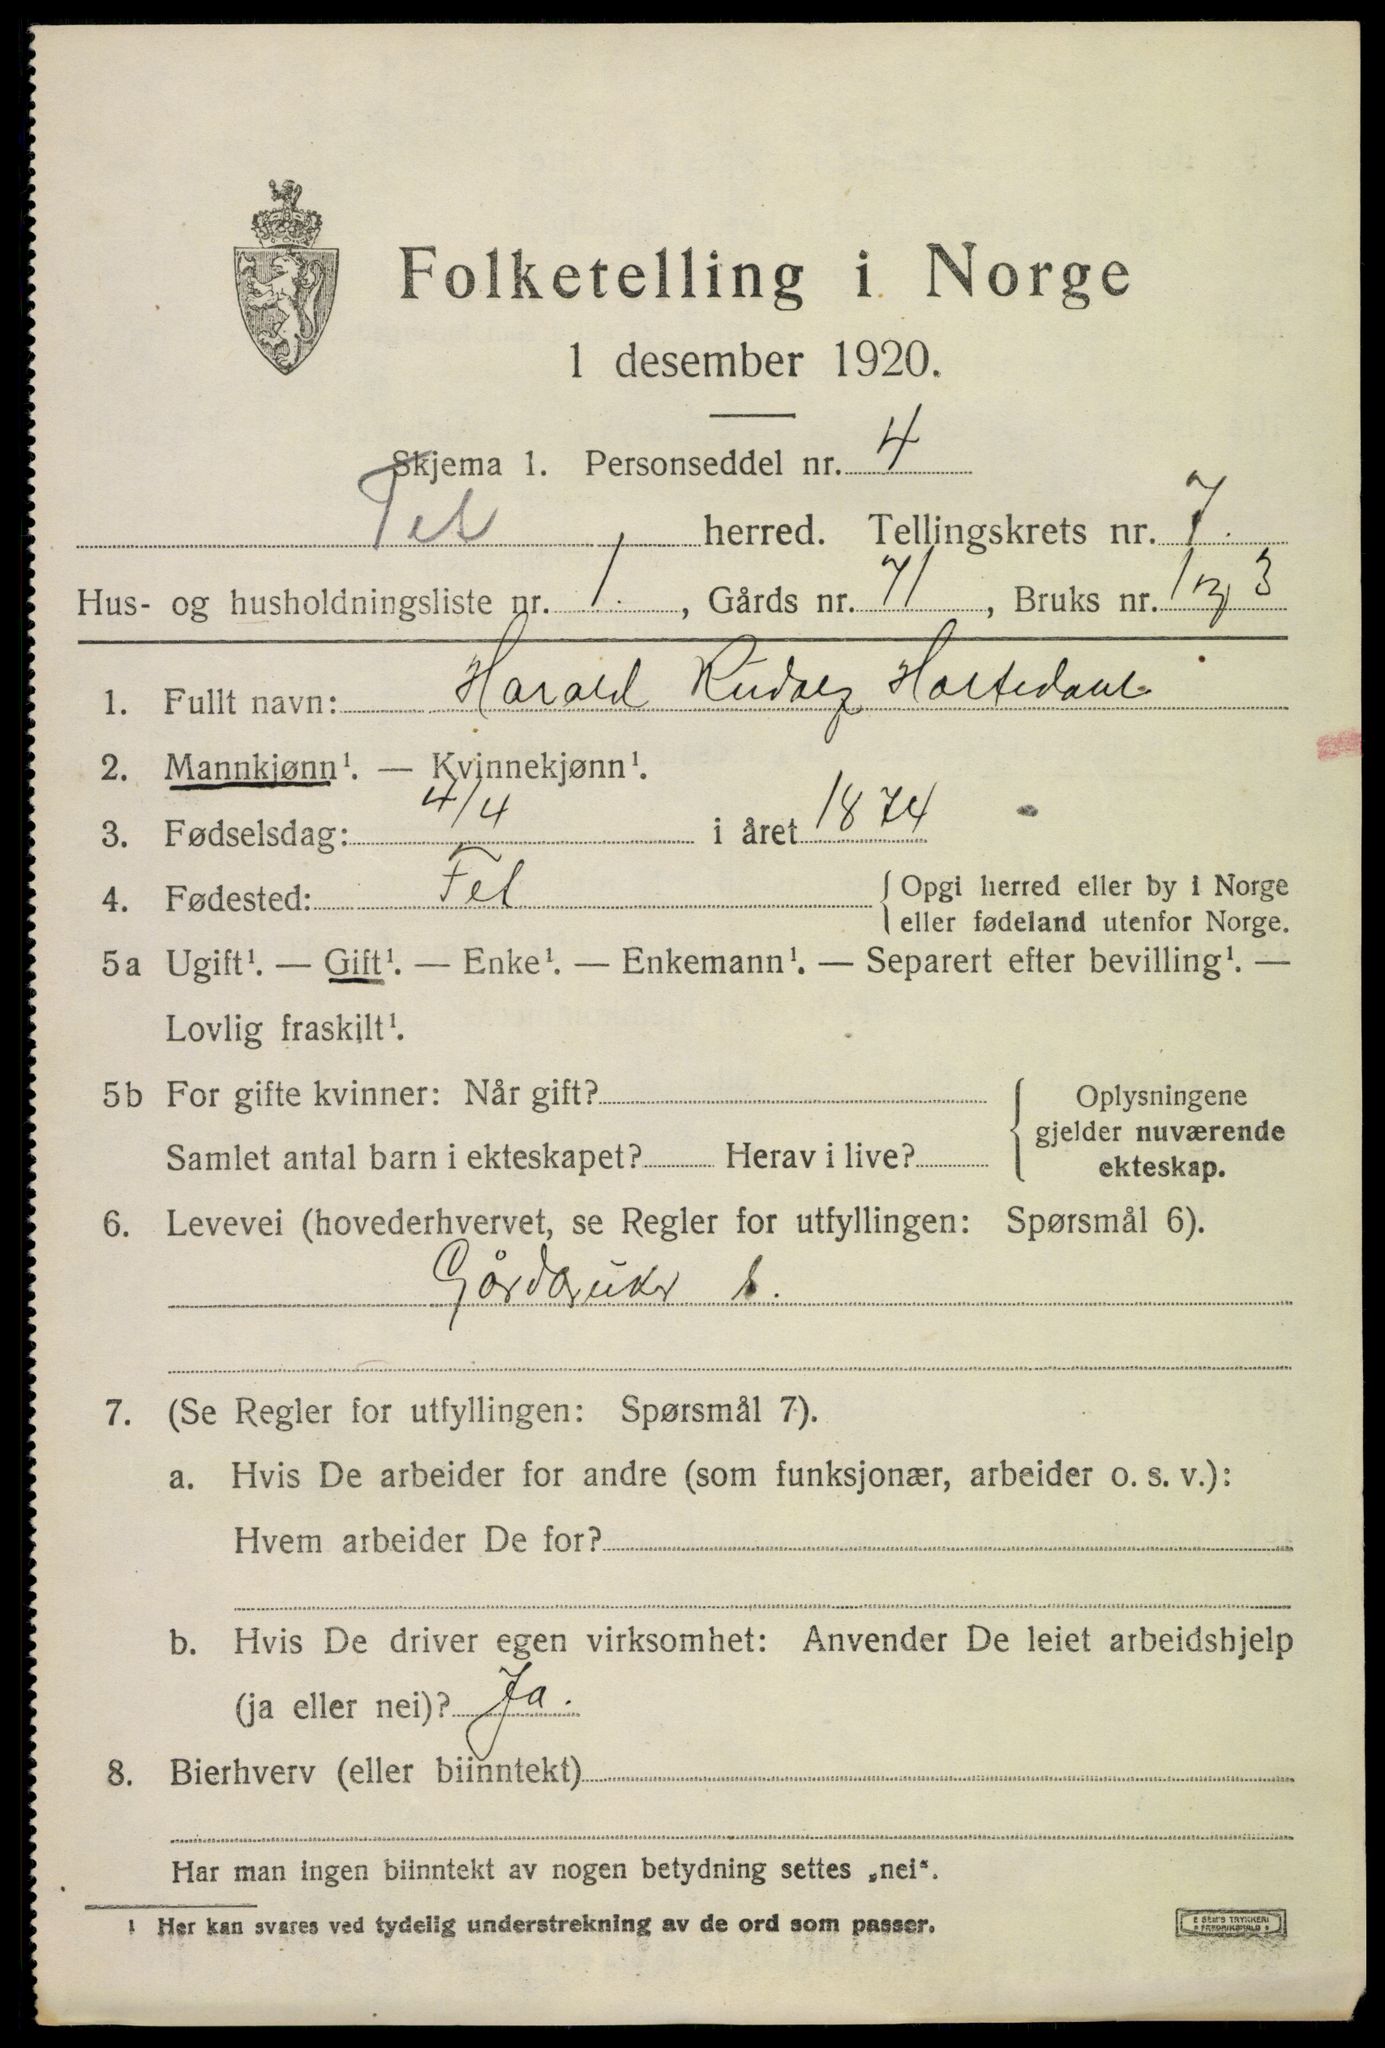 Folketelling i Norge
1 desember 1920.
Skjema 1. Personseddel nr. 4
Fet herred. Tellingskrets nr. 7.
Hus- og husholdningsliste nr. 1., Gårds nr. 71, Bruks nr. 1 og 3
1. Fullt navn: Harald Rudolf
2. Mannkjønn¹. — Kvinnekjønn¹.
3. Fødselsdag: 4/4 i året 1874
4. Fødested: Fet { Opgi herred eller by i Norge
eller fødeland utenfor Norge.
5a Ugift¹. — Gift¹. — Enke¹. — Enkemann¹. — Separert efter bevilling¹. —
Lovlig fraskilt¹.
5b For gifte kvinner: Når gift?
Samlet antal barn i ekteskapet? Herav i live?
Oplysningene
gjelder nuværende
ekteskap.
6. Levevei (hovederhvervet, se Regler for utfyllingen: Spørsmål 6).
Gårdbruker s.
7. (Se Regler for utfyllingen: Spørsmål 7).
a. Hvis De arbeider for andre (som funksjonær, arbeider o. s. v.):
Hvem arbeider De for?
b. Hvis De driver egen virksomhet: Anvender De leiet arbeidshjelp
(ja eller nei)? Ja.
8. Bierhverv (eller biinntekt)
Har man ingen biinntekt av nogen betydning settes „nei“.
1 Her kan svares ved tydelig understrekning av de ord som passer.
E SEM'S TRYKKERI
FREDRIKSHALD